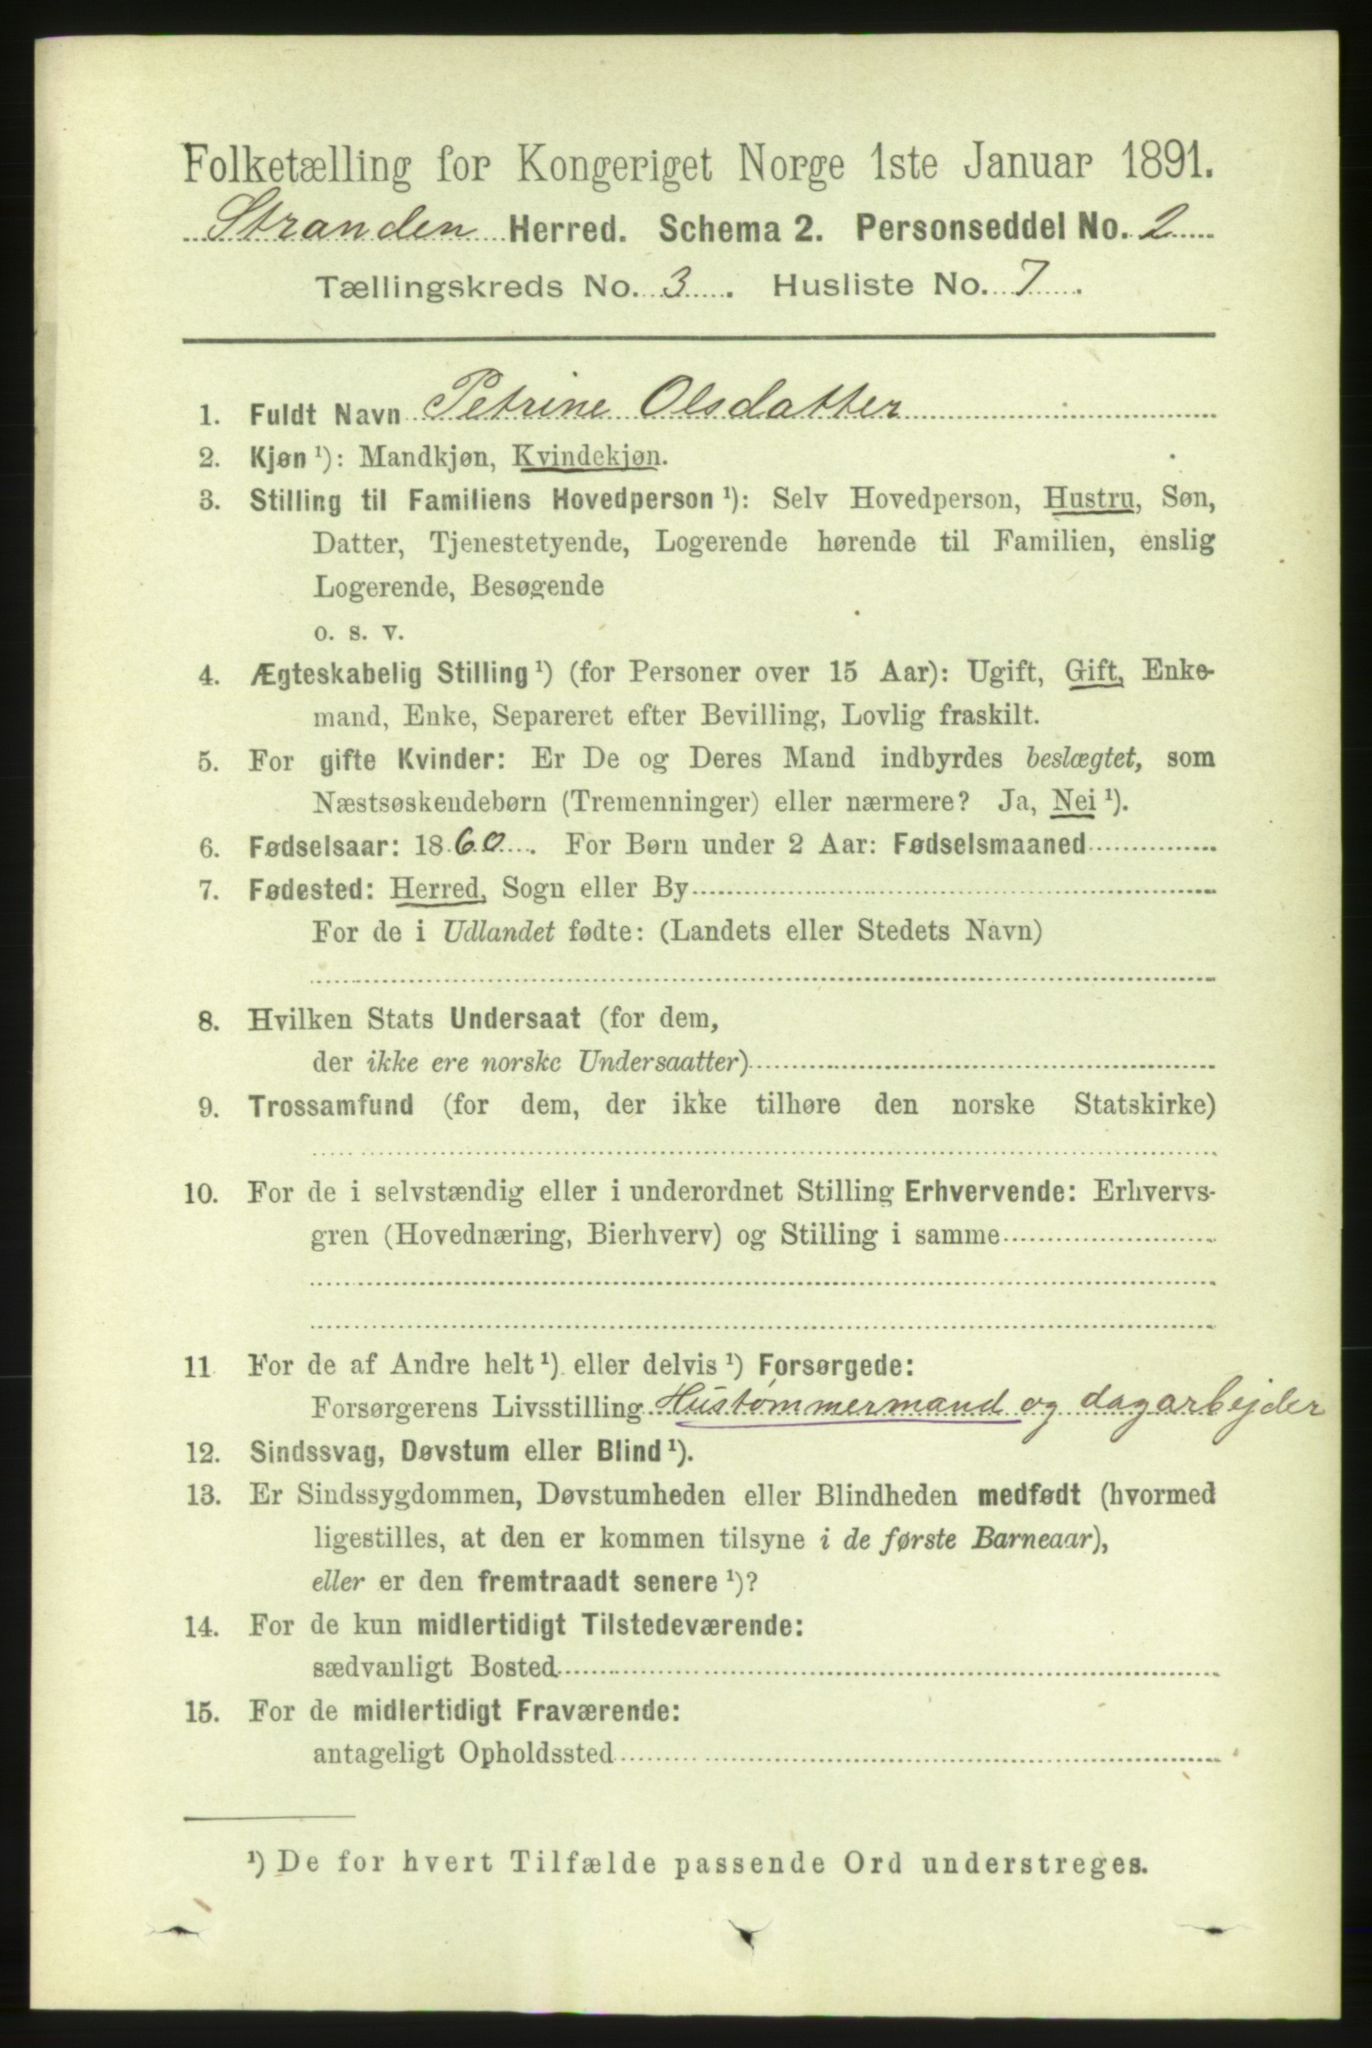 Folketælling for Kongeriget Norge 1ste Januar 1891.
Stranden Herred. Schema 2. Personseddel No. 2
Tællingskreds No. 3. Husliste No. 7.
1. Fuldt Navn Petrine Olsdatter
2. Kjøn ¹): Mandkjøn, Kvindekjøn.
3. Stilling til Familiens Hovedperson ¹): Selv Hovedperson, Hustru, Søn,
Datter, Tjenestetyende, Logerende hørende til Familien, enslig
Logerende, Besøgende
o. s. v.
4. Ægteskabelig Stilling ¹) (for Personer over 15 Aar): Ugift, Gift, Enke-
mand, Enke, Separeret efter Bevilling, Lovlig fraskilt.
5. For gifte Kvinder: Er De og Deres Mand indbyrdes beslægtet, som
Næstsøskendebørn (Tremenninger) eller nærmere? Ja, Nei ¹).
6. Fødselsaar: 1860. For Børn under 2 Aar: Fødselsmaaned
7. Fødested: Herred, Sogn eller By
For de i Udlandet fødte: (Landets eller Stedets Navn)
8. Hvilken Stats Undersaat (for dem,
der ikke ere norske Undersaatter)
9. Trossamfund (for dem, der ikke tilhøre den norske Statskirke)
10. For de i selvstændig eller i underordnet Stilling Erhvervende: Erhvervs-
gren (Hovednæring, Bierhverv) og Stilling i samme
11 For de af Andre helt ¹) eller delvis ¹) Forsørgede:
Forsørgerens Livsstilling Hustømmermand og dagarbejder
12. Sindssvag, Døvstum eller Blind ¹).
13. Er Sindssygdommen, Døvstumheden eller Blindheden medfødt (hvormed
ligestilles, at den er kommen tilsyne i de første Barneaar),
eller er den fremtraadt senere ¹)?
14. For de kun midlertidigt Tilstedeværende:
sædvanligt Bosted
15. For de midlertidigt Fraværende:
antageligt Opholdssted
¹) De for hvert Tilfælde passende Ord understreges.